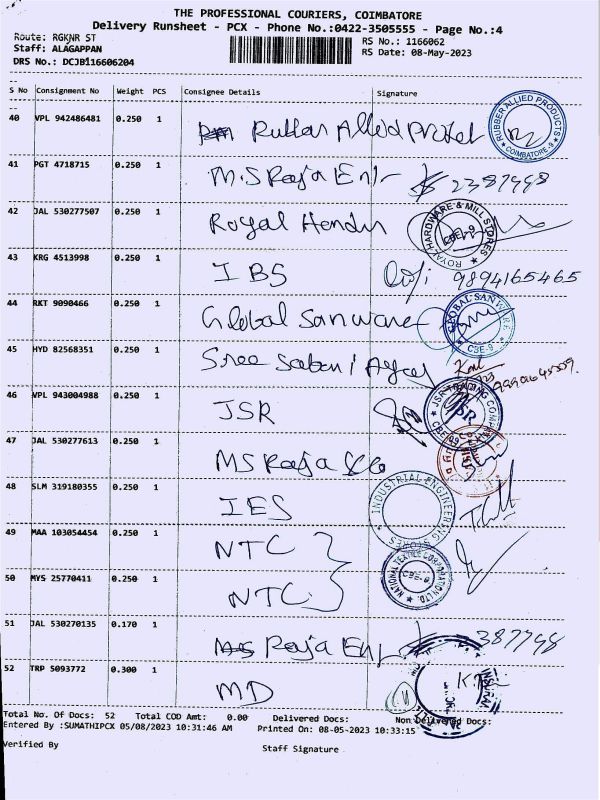 THE PROFESSIONAL COURIERS, COIMBATORE
Delivery Runsheet - PCX - Phone No.:0422-3505555 - Page No.:4
Route: RGKNR ST
RS No.: 1166062
Staff: ALAGAPPAN
RS Date: 08-May-2023
DRS No.: DCJB116606204
S No Consignment No Weight PCS Consignee Details Signature
40 VPL 942486481 0.250 1 Allied
RUBBER ALLIED PRODUCTS COIMBATORE-9
41 PGT 4718715 0.250 1 M.S Raja 2387998
42 JAL 530277507 0.250 1 Royal
ROYAL HARDWARE & MILL STORES CBE-9
43 KRG 4513998 0.250 1 IBS 9894165465
44 RKT 9090466 0.250 1 Global Sanware
GLOBAL SANWARE CBE-9
45 HYD 82568351 0.250 1 Sree
46 VPL 943004988 0.250 1 JSR
JSR TRADING COMPANY JSR CBE-9
47 JAL 530277613 0.250 1 MS Raja & Co
48 SLM 319180355 0.250 1 IES
INDUSTRIAL ENGINEERING STORES
49 MAA 103054454 0.250 1 NTC
NATIONAL TEXTILE CORPORATION LTD. CBE-9
50 MYS 25770411 0.250 1 NTC
51 JAL 530270135 0.170 1 Raja
52 TRP 5093772 0.300 1 MD
Total No. Of Docs: 52 Total COD Amt: 0.00 Delivered Docs: Non Delivered Docs:
Entered By :SUMATHIPCX 05/08/2023 10:31:46 AM Printed On: 08-05-2023 10:33:15
Verified By Staff Signature